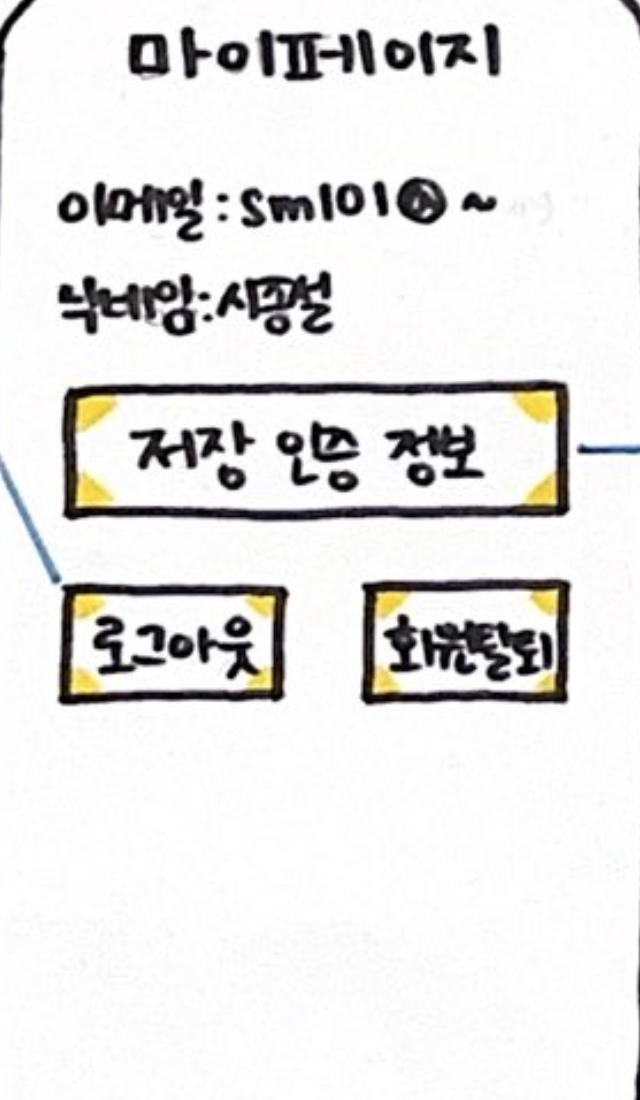 마이페이지
이메일:sm101@~
닉네임:시종설
저장 인증 정보
로그아웃 회원탈퇴